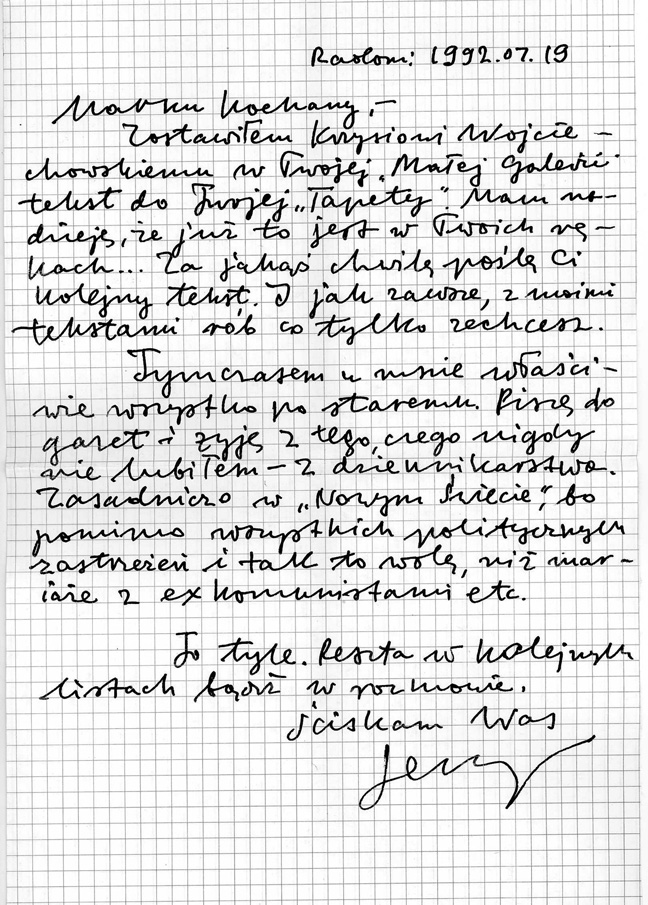 Radom: 1992.07.19
Marku Kochany,–
Zostawiłem Krzysiowi Wojcie-
chowskiemu w Twojej „Małej Galerii”
tekst do Twojej „Tapety”. Mam na-
dzieję, że już to jest w Twoich rę-
kach... Za jakąś chwilę poślę Ci
kolejny tekst. I jak zawsze, z moimi
tekstami rób co tylko zechcesz.
Tymczasem u mnie właści-
wie wszystko po staremu. Piszę do
gazet i żyję z tego, czego nigdy
nie lubiłem – z dziennikarstwa.
Zasadniczo w „Nowym Świecie”, bo
pomimo wszystkich politycznych
zastrzeżeń i tak to wolę, niż mar-
iaże z exkomunistami etc.
To tyle. Reszta w kolejnych
listach bądź w rozmowie.
Ściskam Was
Jerzy